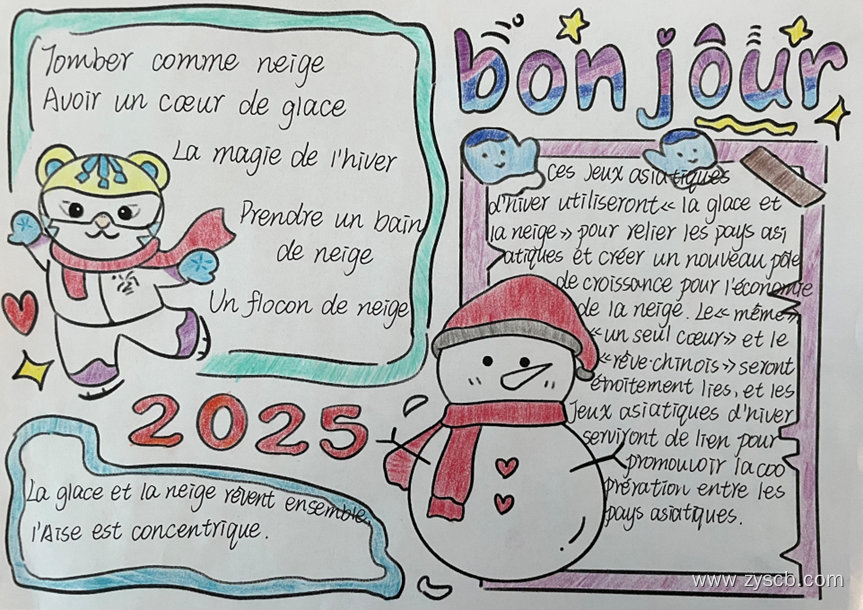 Tomber comme neige
Avoir un cœur de glace
La magie de l'hiver
Prendre un bain
de neige
Un flocon de neige
bonjôur
ces jeux asiatiques
d'hiver utiliseront « la glace et
la neige » pour relier les pays asi
atiques et créer un nouveau pôle
de croissance pour l'économie
de la neige. Le « même »
« un seul cœur » et le
« rêve·chinois » seront
étroitement lies, et les
Jeux asiatiques d'hiver
serviront de lien pour
promouvoir la coo
pération entre les
pays asiatiques.
2025
La glace et la neige rêvent ensemble,
l'Aise est concentrique.
www.zyscb.com